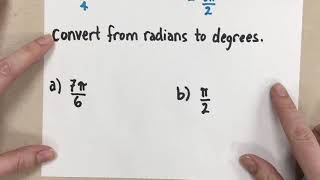 4 2
Convert from radians to degrees.
a) 7π/6 b) π/2